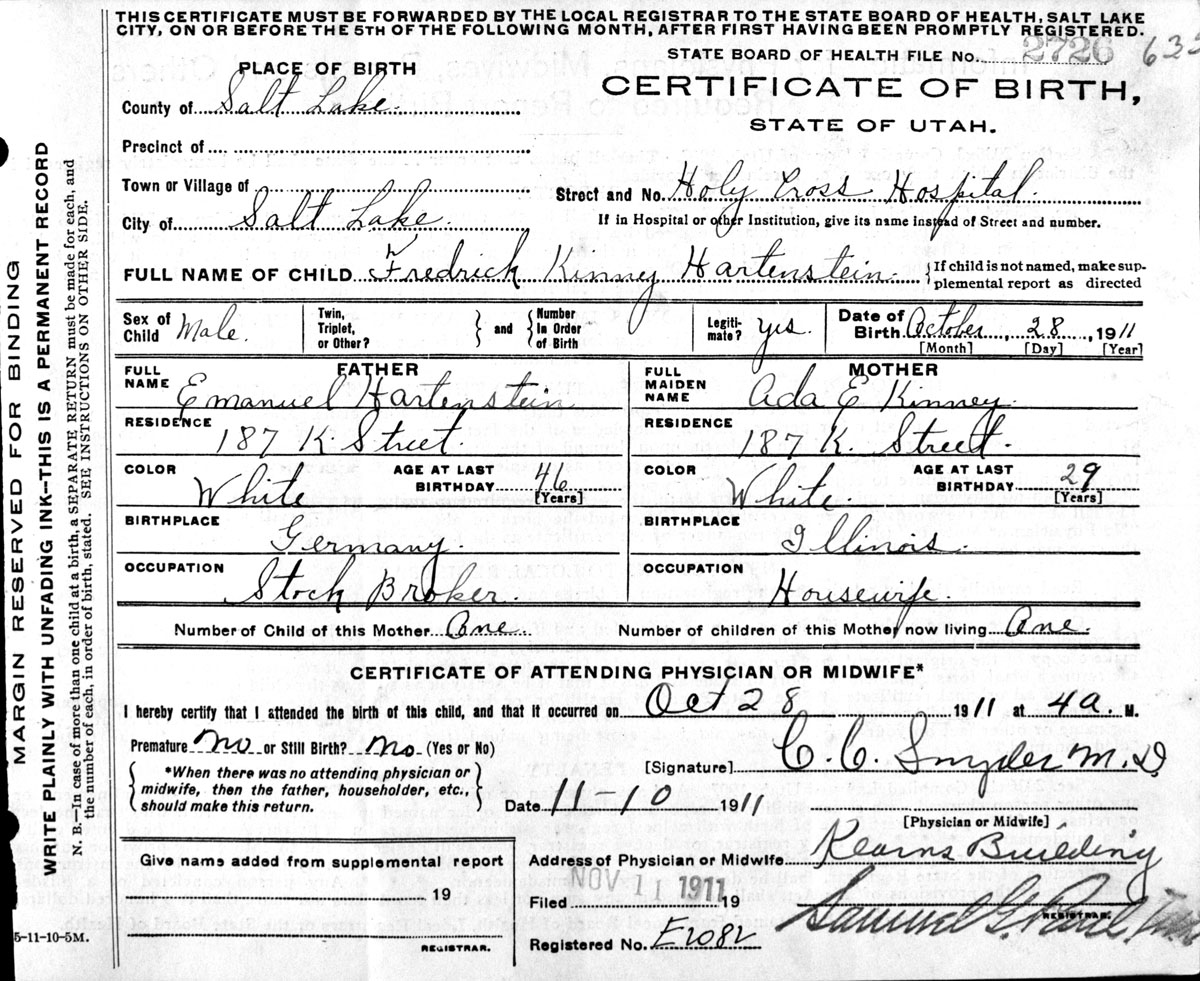 THIS CERTIFICATE MUST BE FORWARDED BY THE LOCAL REGISTRAR TO THE STATE BOARD OF HEALTH, SALT LAKE
CITY, ON OR BEFORE THE 5TH OF THE FOLLOWING MONTH, AFTER FIRST HAVING BEEN PROMPTLY REGISTERED.
STATE BOARD OF HEALTH FILE No. 2726
PLACE OF BIRTH
CERTIFICATE OF BIRTH,
STATE OF UTAH.
County of Salt Lake.
Precinct of
Town or Village of
Street and No. Holy Cross Hospital.
City of Salt Lake.
If in Hospital or other Institution, give its name instead of Street and number.
FULL NAME OF CHILD Fredrick Kinney Hartenstein. {If child is not named, make sup-
plemental report as directed
Sex of Child Male. Twin, Triplet, or Other? } and { Number In Order of Birth Legiti-mate? yes. Date of Birth October, 28, 1911
[Month] [Day] [Year]
FATHER MOTHER
FULL NAME Emanuel Hartenstein FULL MAIDEN NAME Ada E Kinney.
RESIDENCE 187 K. Street. RESIDENCE 187 K. Street.
COLOR White AGE AT LAST BIRTHDAY 46 [Years] COLOR White. AGE AT LAST BIRTHDAY 29 [Years]
BIRTHPLACE Germany. BIRTHPLACE Illinois.
OCCUPATION Stock Broker. OCCUPATION Housewife.
Number of Child of this Mother One. Number of children of this Mother now living One.
CERTIFICATE OF ATTENDING PHYSICIAN OR MIDWIFE*
I hereby certify that I attended the birth of this child, and that it occurred on Oct 28 1911 at 4a. M.
Premature No or Still Birth? No (Yes or No)
*When there was no attending physician or
midwife, then the father, householder, etc.,
should make this return.
[Signature] C. C. Snyder M.D
Date 11-10 1911
[Physician or Midwife]
Give name added from supplemental report
19
REGISTRAR.
Address of Physician or Midwife Kearns Building
Filed NOV 11 1911 19
REGISTRAR.
Registered No. E2082
5-11-10-5M.
MARGIN RESERVED FOR BINDING
WRITE PLAINLY WITH UNFADING INK—THIS IS A PERMANENT RECORD
N. B.—In case of more than one child at a birth, a SEPARATE RETURN must be made for each, and
the number of each, in order of birth, stated. SEE INSTRUCTIONS ON OTHER SIDE.